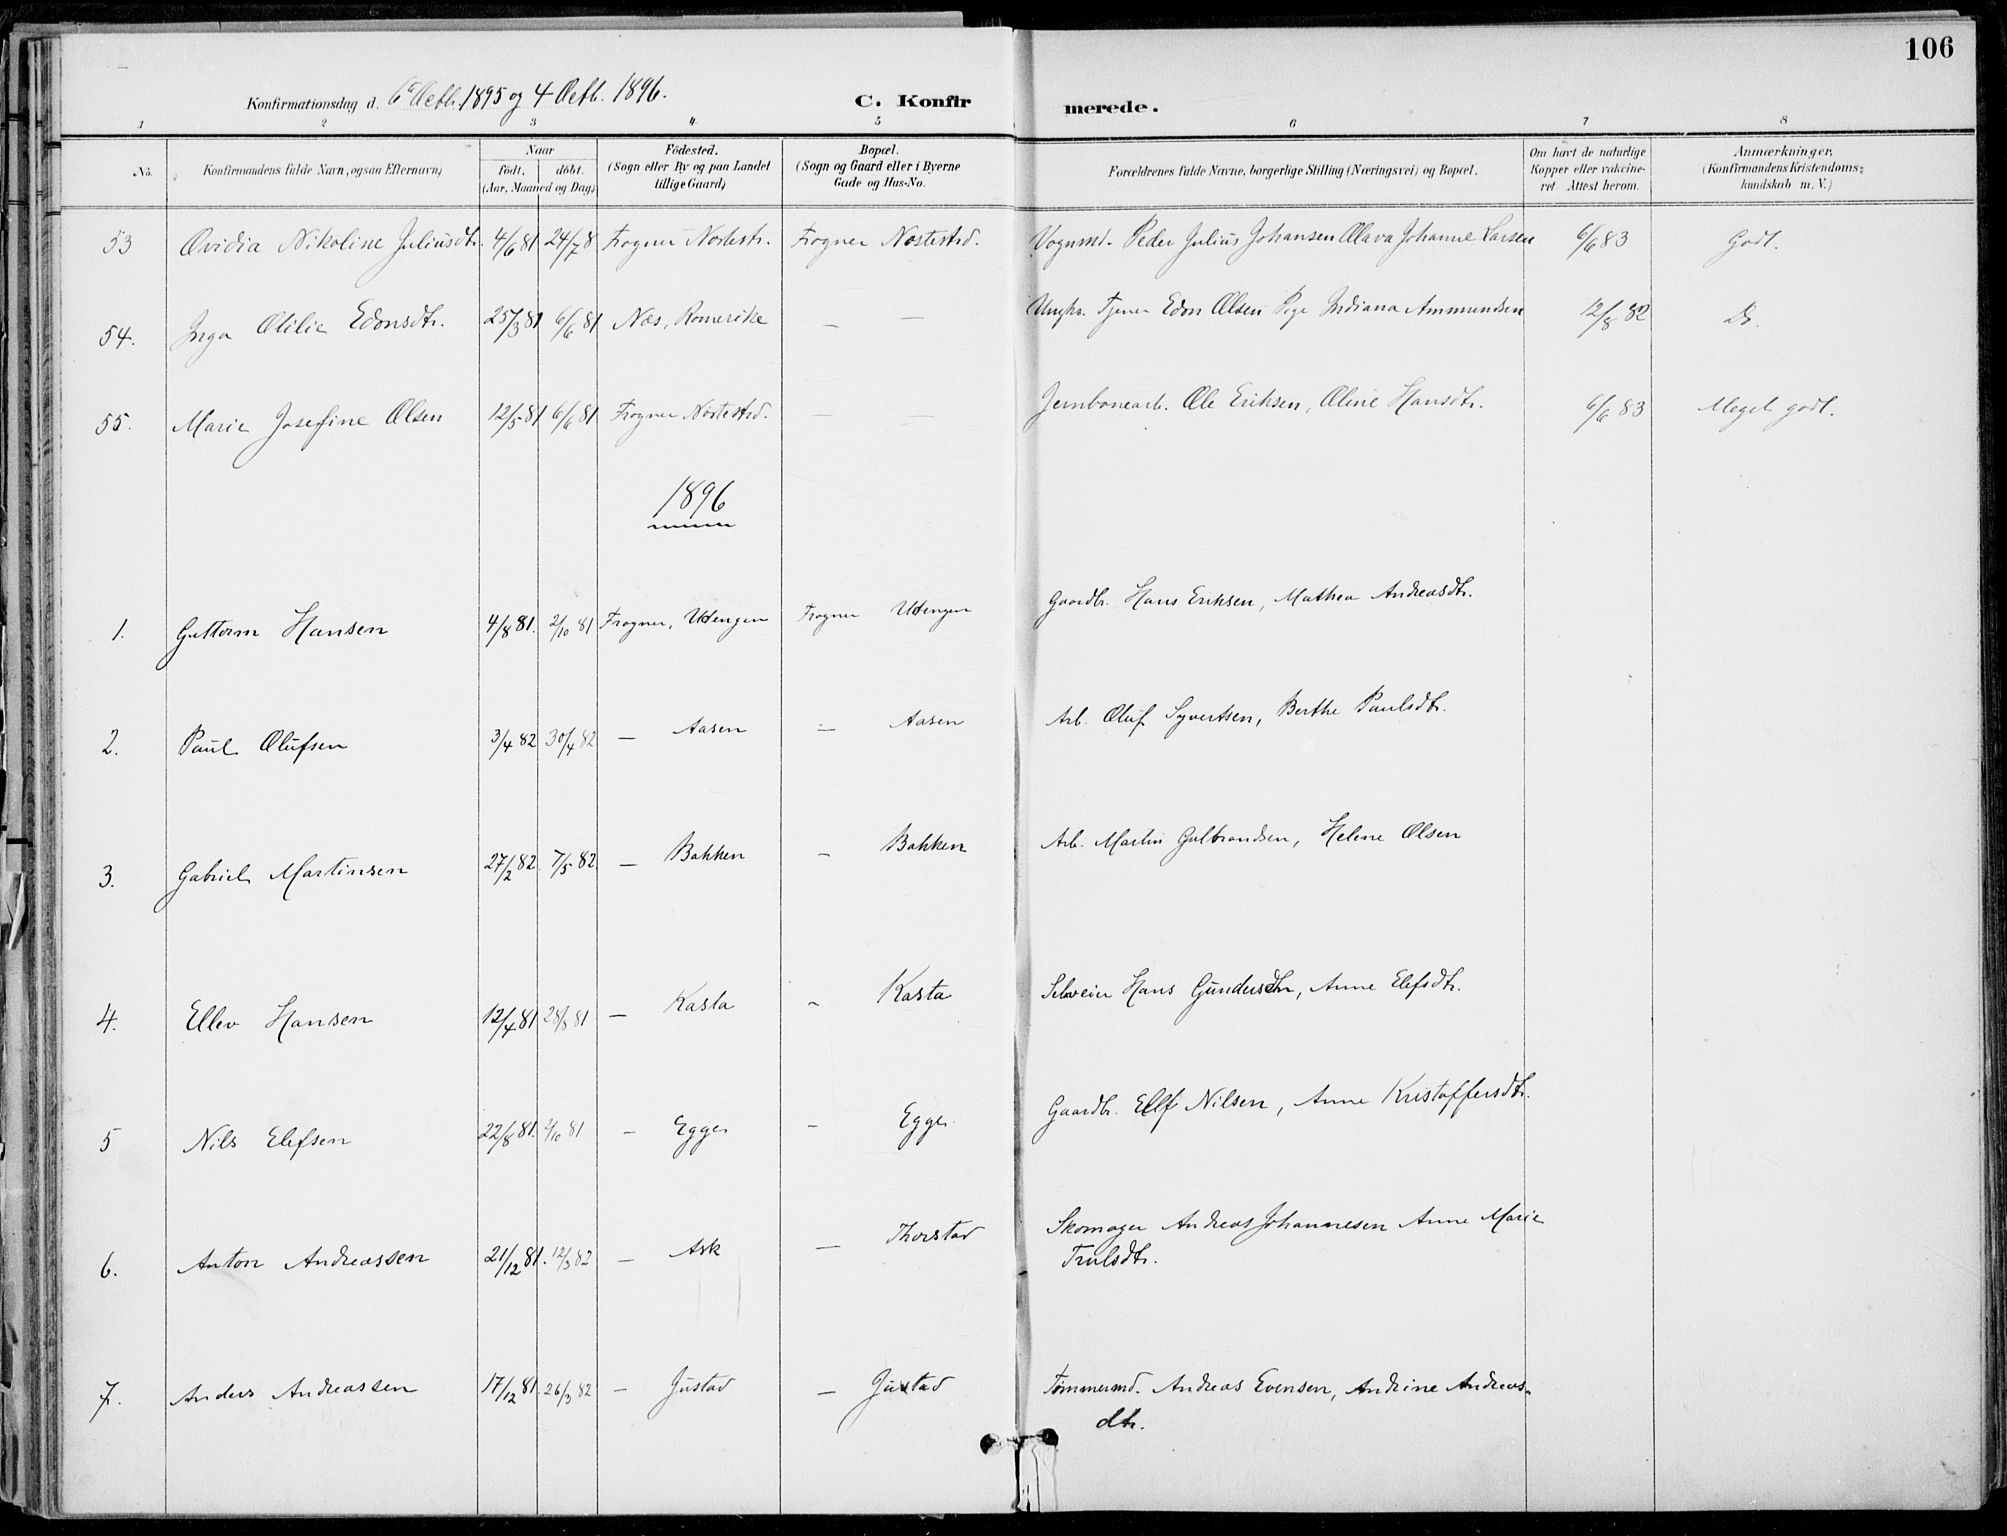 106
Konfirmationsdag d. 6te Octb. 1895 og 4 Octb. 1896. C. Konfir merede.
1 2 3 4 5 6 7 8
No. Konfirmandens fulde Navn, ogsaa Efternavn) Naar Födested. Bopæl. Forældrenes fulde Navne, borgerlige Stilling (Næringsvei) og Bopæl. Om havt de naturlige Anmærkninger.
födt. döbt. (Sogn eller By og paa Landet (Sogn og Gaard eller i Byerne Kopper eller vakcine- (Konfirmandens Kristendoms-
(Aar, Maaned og Dag) tillige Gaard) Gade og Hus-No. ret Attest herom. kundskab m. V.)
53 Ovidia Nikoline Juliusdtr. 4/6 81 24/7 8 Frogner Nostestr. Frogner Nostestrd. Vognmd. Peder Julius Johansen Olava Johanne Larsen 6/6 83 Godt.
54. Inga Otilie Edonsdtr. 25/3 81 6/6 81 Næs, Romerike — — Ungkr. Tjener Edon Olsen Pige Indiana Ammundsen 12/8 82 Do.
55. Marie Josefine Olsen 12/5 81 6/6 81 Frogner Nostestrd. — — Jernbanearb. Ole Eriksen, Oline Hansdtr. 6/6 83 Meget godt.
1896
1. Guttorm Hansen 4/8 81. 2/10 81 Frogner, Udengen Frogner Udengen Gaardbr. Hans Eriksen, Mathea Andreasdtr.
2. Paul Olufsen 3/4 82 30/4 82 — Aasen — Aasen Arb. Oluf Syvertsen, Berthe Paulsdtr.
3. Gabriel Martinsen 27/2 82. 7/5 82. — Bakken — Bakken Arb. Martin Gulbrandsen, Helene Olsen
4. Ellev Hansen 12/4 81 28/8 81 — Kasta — Kasta Selveier Hans Gundersen, Anne Elefsdtr.
5 Nils Elefsen 22/8 81. 2/10 81 — Egge — Egge Gaardbr. Ellf Nilsen, Anne Kristoffersdtr.
6. Anton Andreassen 21/12 81. 12/3 82 — Ask — Thorstad Skomager Andreas Johannesen Anne Marie
Trulsdtr.
7. Anders Andreassen 17/12 81. 26/3 82 — Justad — Justad Tømmermd. Andreas Evensen, Andrine Andreas-
dtr.